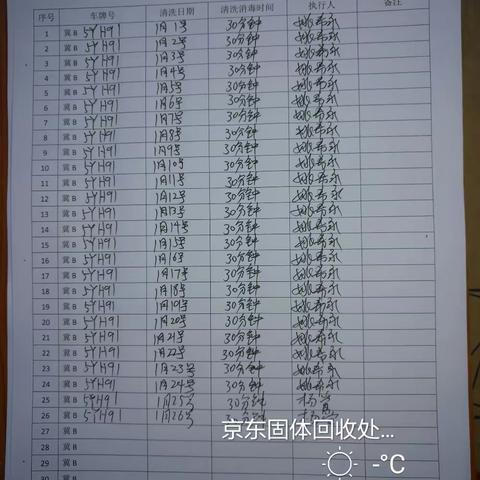 序号 车牌号 清洗日期 清洗消毒时间 执行人 备注
1 冀B 5YH91 1月1号 30分钟
2 冀B 5YH91 1月2号 30分钟
3 冀B 5YH91 1月3号 30分钟
4 冀B 5YH91 1月4号 30分钟
5 冀B 5YH91 1月5号 30分钟
6 冀B 5YH91 1月6号 30分钟
7 冀B 5YH91 1月7号 30分钟
8 冀B 5YH91 1月8号 30分钟
9 冀B 5YH91 1月9号 30分钟
10 冀B 5YH91 1月10号 30分钟
11 冀B 5YH91 1月11号 30分钟
12 冀B 5YH91 1月12号 30分钟
13 冀B 5YH91 1月13号 30分钟
14 冀B 5YH91 1月14号 30分钟
15 冀B 5YH91 1月15号 30分钟
16 冀B 5YH91 1月16号 30分钟
17 冀B 5YH91 1月17号 30分钟
18 冀B 5YH91 1月18号 30分钟
19 冀B 5YH91 1月19号 30分钟
20 冀B 5YH91 1月20号 30分钟
21 冀B 5YH91 1月21号 30分钟
22 冀B 5YH91 1月22号 30分钟
23 冀B 5YH91 1月23号 30分钟
24 冀B 5YH91 1月24号 30分钟
25 冀B 5YH91 1月25号 30分钟
26 冀B 5YH91 1月26号 30分钟
27 冀B
京东固体回收处...
28 冀B
29 冀B
-°C
30 冀B